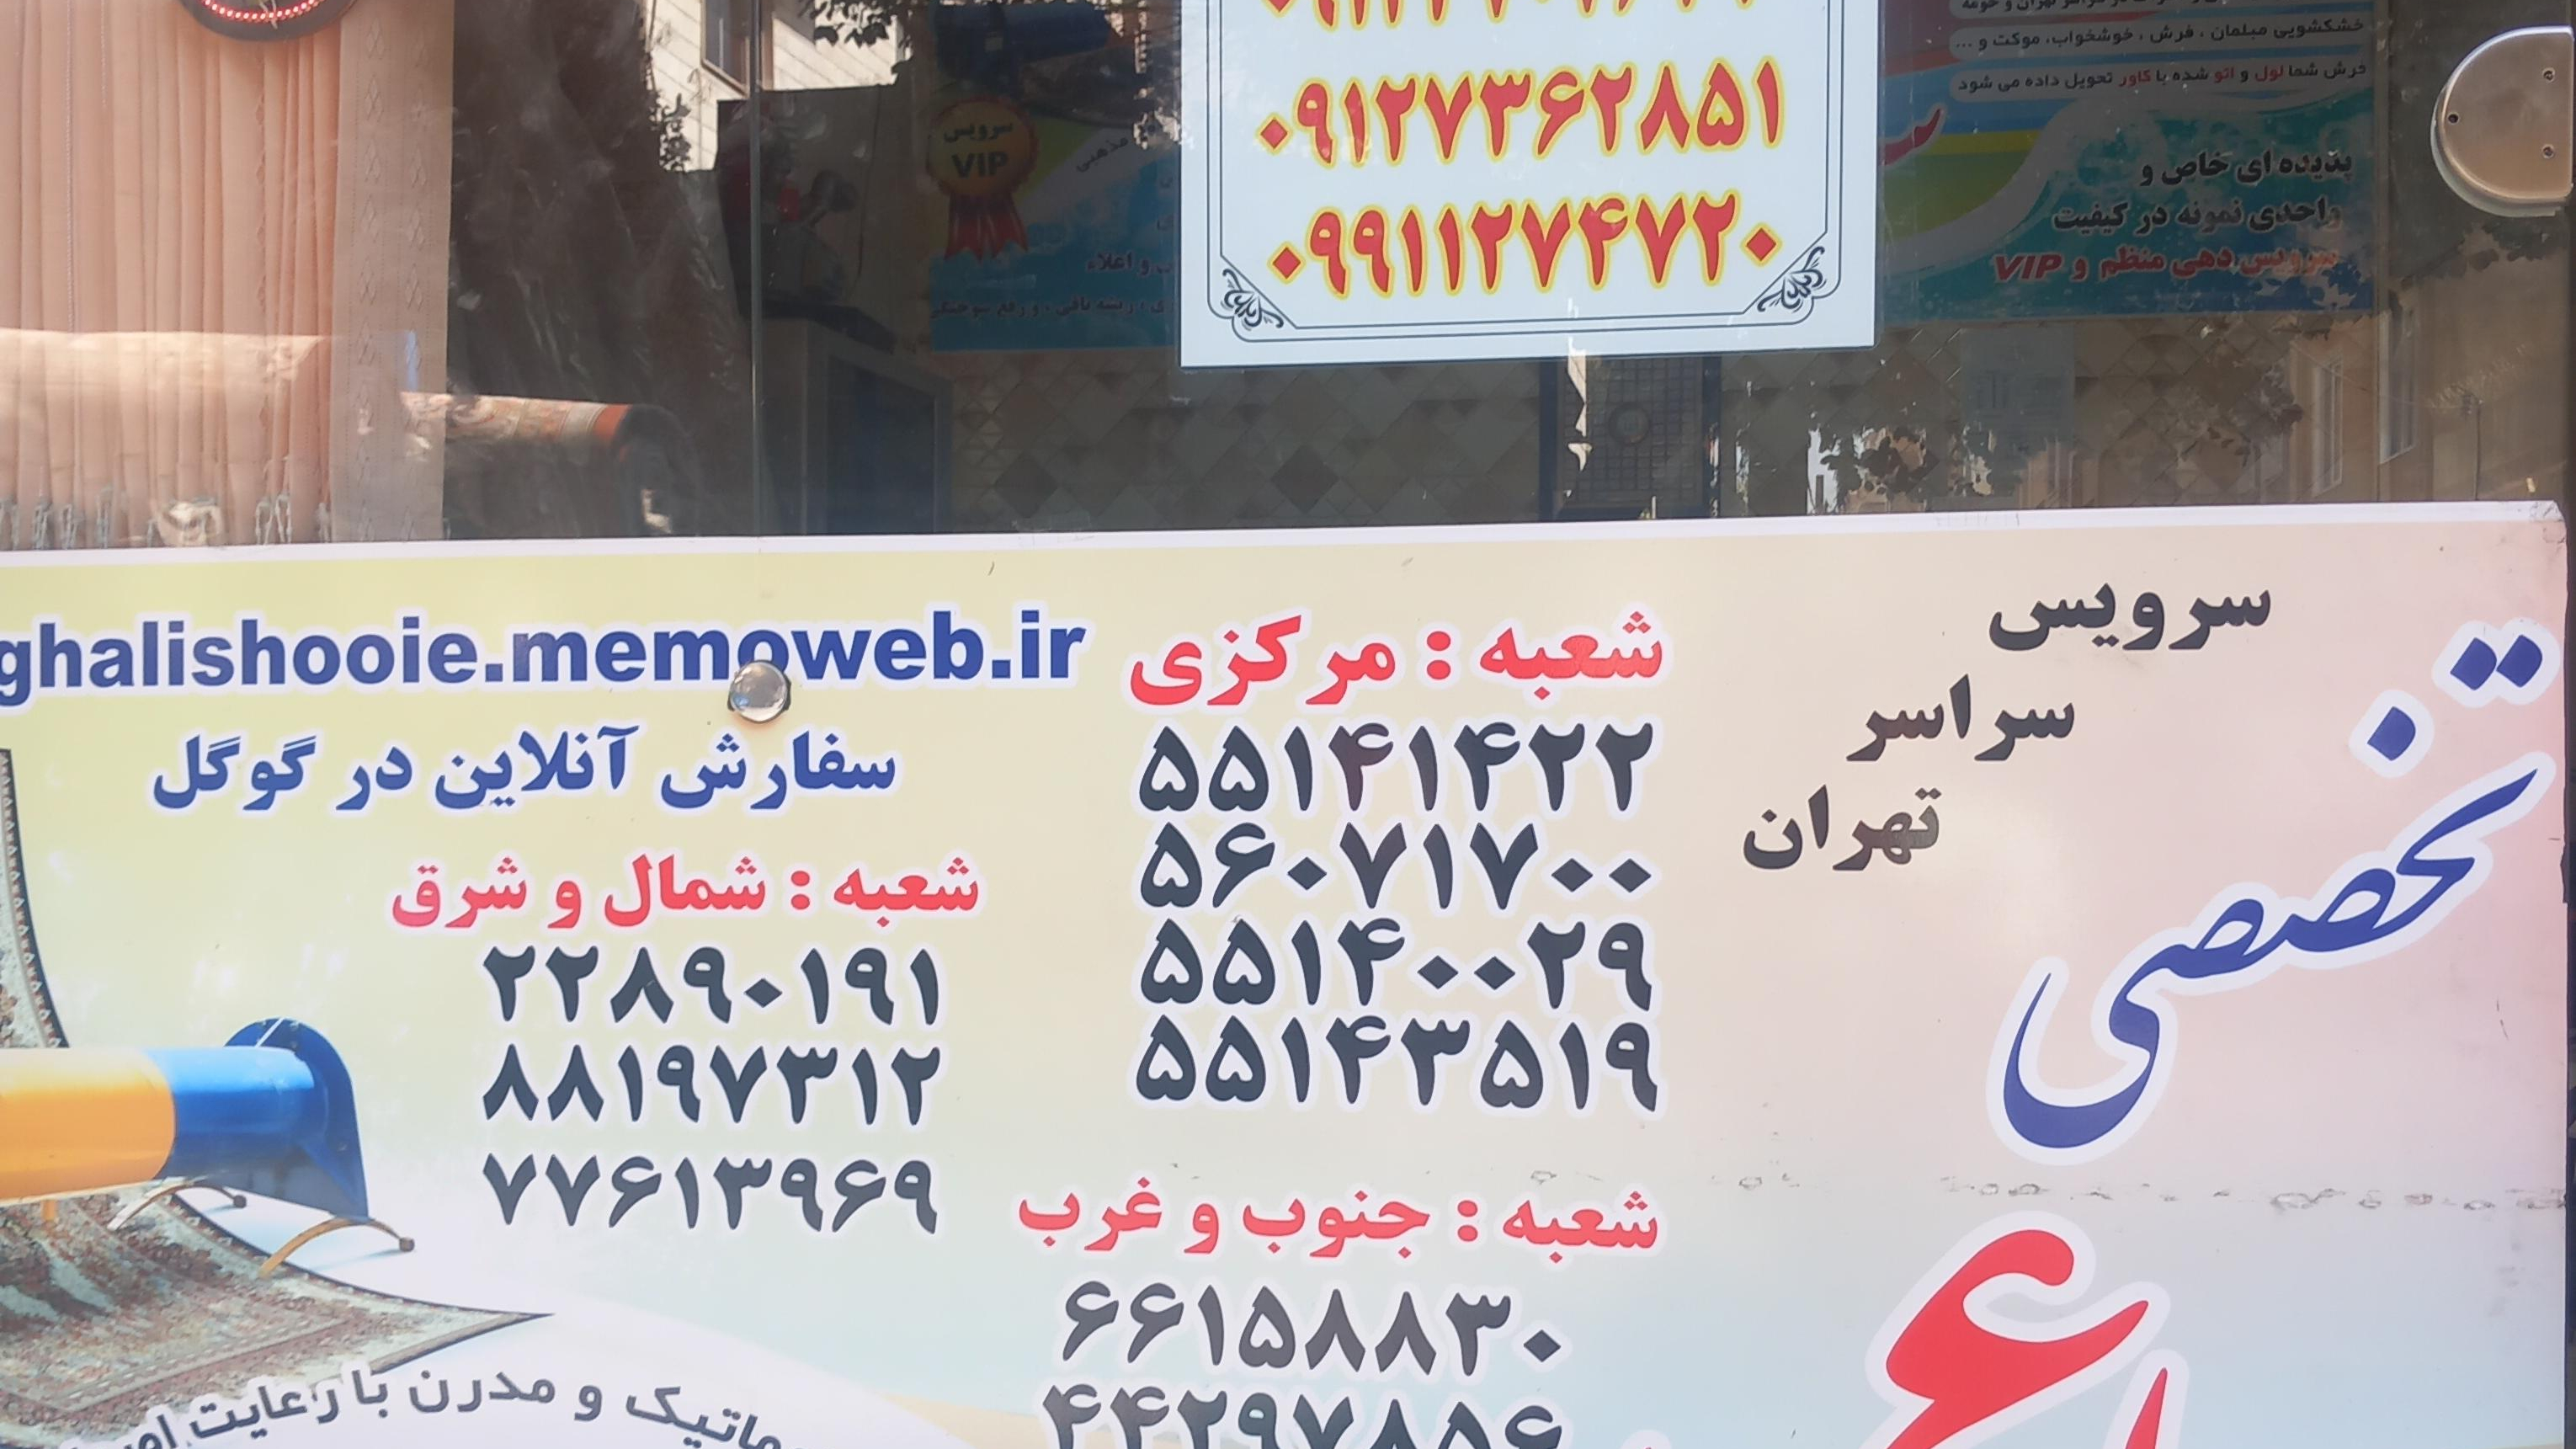 ۰۹۱۲۷۳۶۲۸۵۱
۰۹۹۱۱۲۷۴۷۲۰
خشکشویی مبلمان ، فرش ، خوشخواب، موکت و ...
فرش شما لول و اتو شده با کاور تحویل داده می شود
پدیده ای خاص و
واحدی نمونه در کیفیت
سرویس دهی منظم و VIP
سرویس
VIP
مذهبی
و اعلاء
، ریشه بافی ، و رفع سوختگی
سرویس
سراسر
تهران
تخصصی
شعبه : مرکزی
۵۵۱۴۱۴۲۲
۵۶۰۷۱۷۰۰
۵۵۱۴۰۰۲۹
۵۵۱۴۳۵۱۹
شعبه : جنوب و غرب
۶۶۱۵۸۸۳۰
۴۴۲۹۷۸۵۶
ghalishooie.memoweb.ir
سفارش آنلاین در گوگل
شعبه : شمال و شرق
۲۲۸۹۰۱۹۱
۸۸۱۹۷۳۱۲
۷۷۶۱۳۹۶۹
ماتیک و مدرن با رعایت